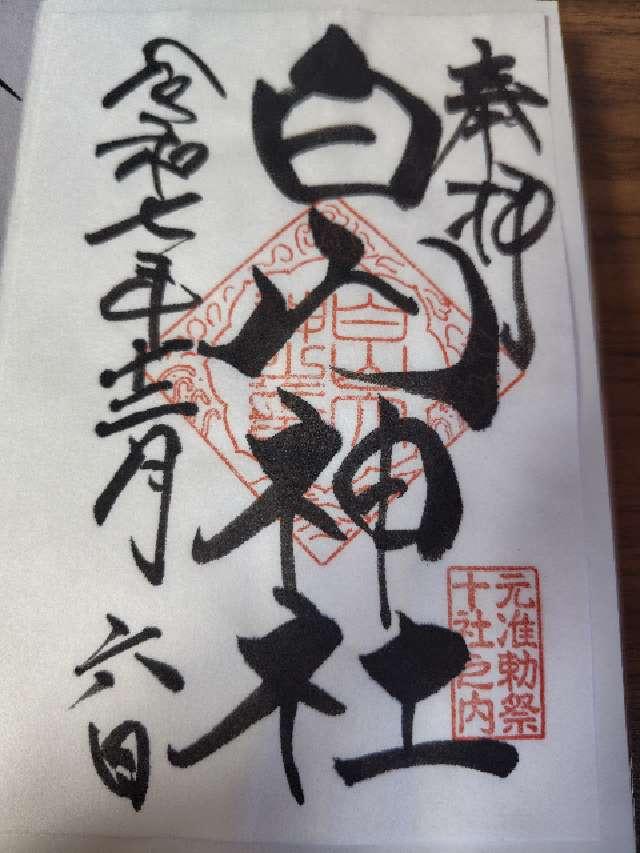 奉拝
白山神社
元准勅祭
十社之内
令和七年十二月六日